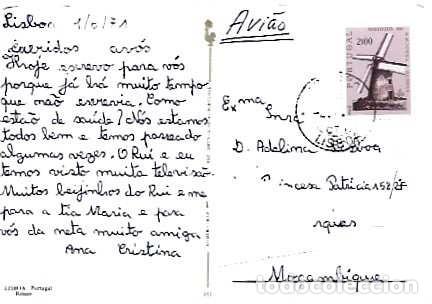 Lisboa 1/6/71
Queridos avós
Hoje escrevo para vós
porque já há muito tempo
que não escrevia. Como
estão de saúde? Nós estamos
todos bem e temos passeado
algumas vezes. O Rui e eu
temos visto muita televisão.
Muitos beijinhos do Rui e me
para a tia Maria e para
vós da neta muito amiga
Ana Cristina
LISBOA Portugal
Avião
PORTUGAL
2$00
Exma Snra
D. Adelina
Princesa Patrícia 152
Moçambique
todocoleccion